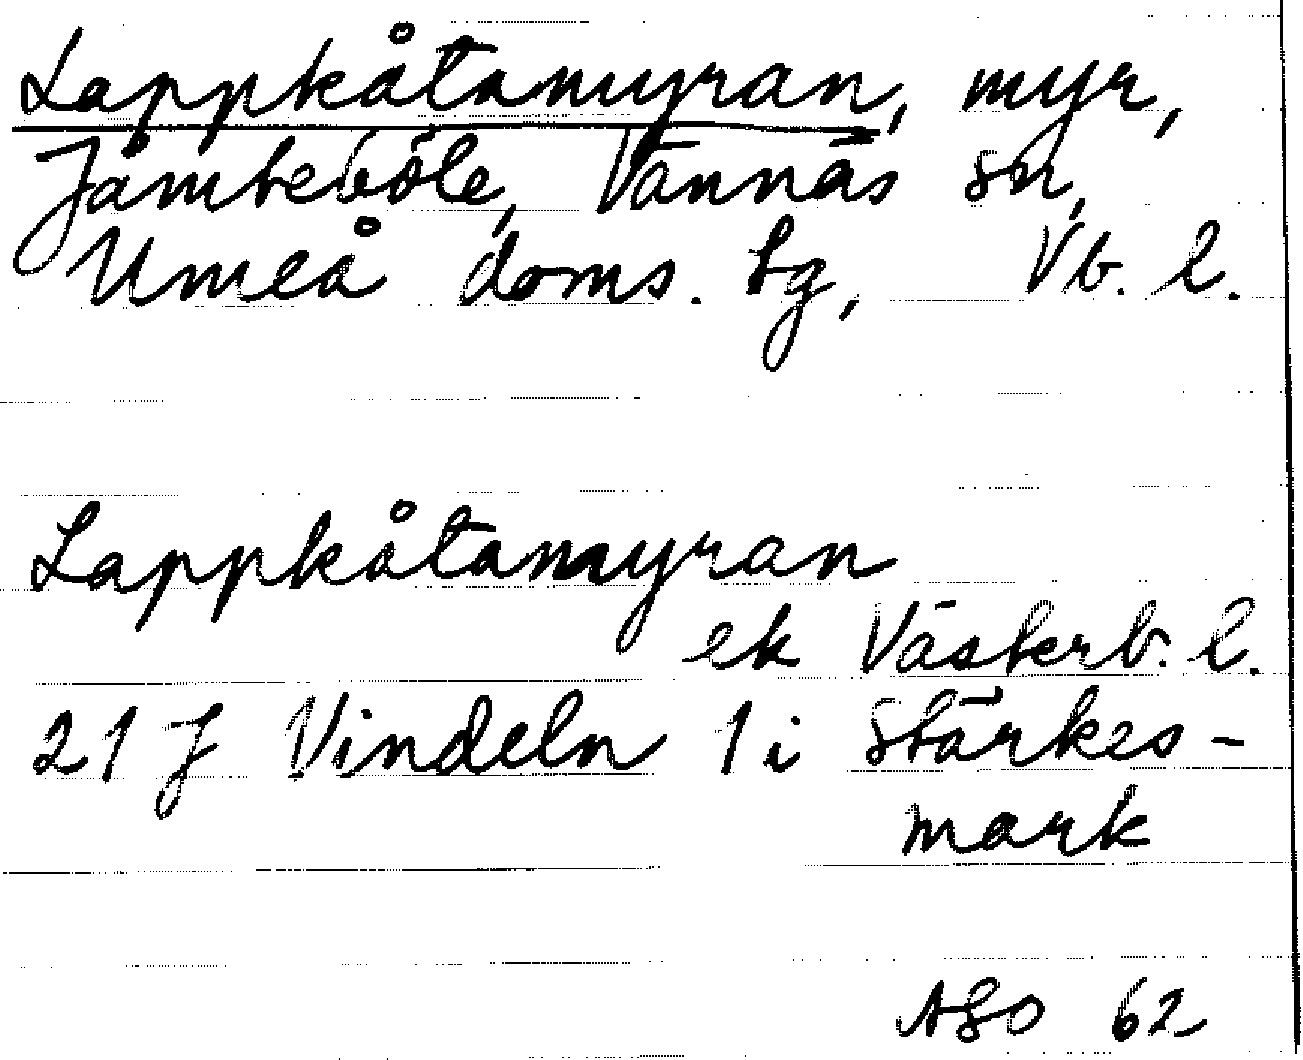 Lappkåtamyran, myr,
Jämteböle, Vännäs sn,
Umeå doms. tg, Vb. l.
Lappkåtamyran
ek Västerb. l.
21 J Vindeln 1 i Stärkes-
mark
ASO 62